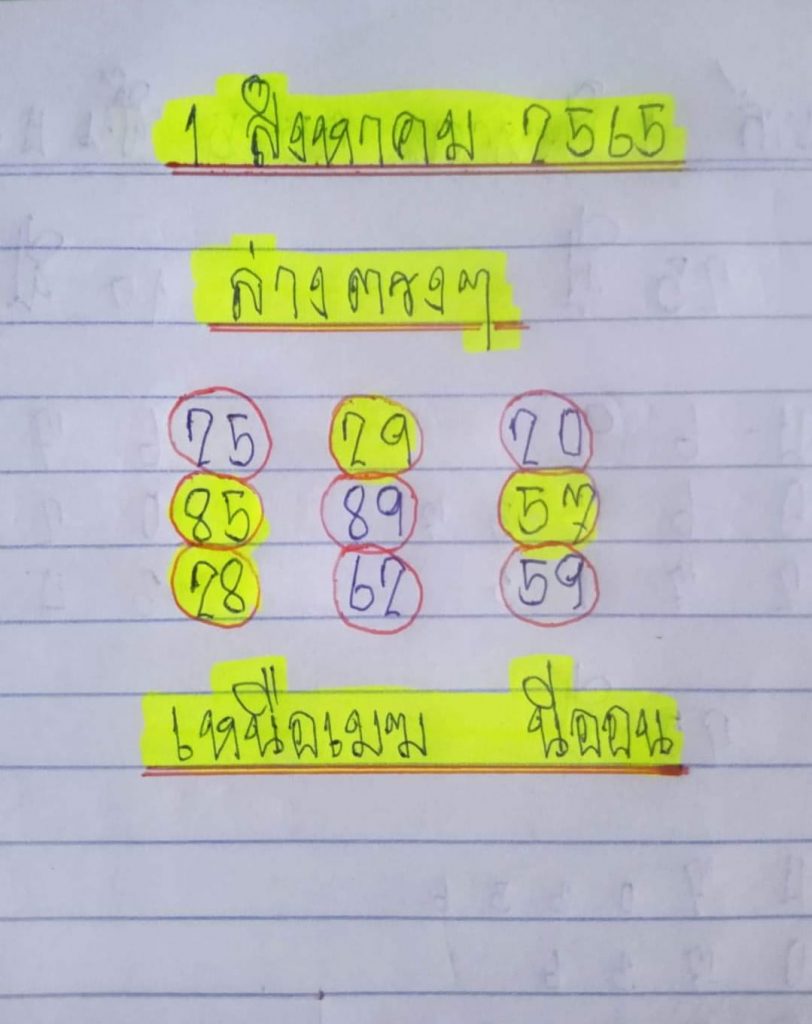 1 สิงหาคม 2565
ล่างตรงๆ
25 29 20
85 89 57
28 62 59
เหนือเมฆ นีออน